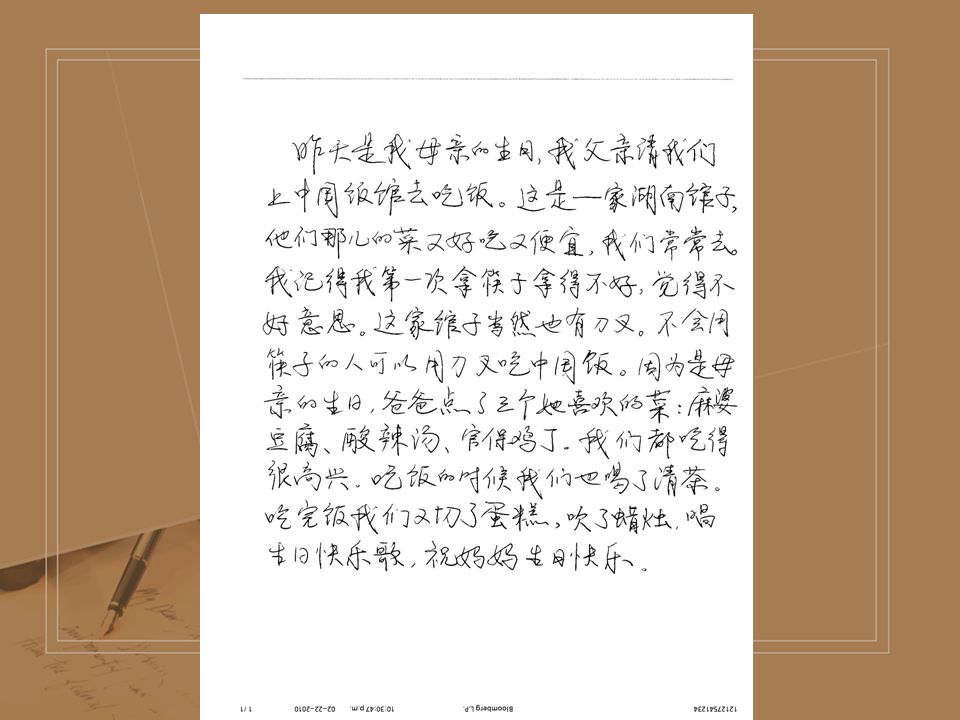 昨天是我母亲的生日,我父亲请我们
上中国饭馆去吃饭。这是一家湖南馆子,
他们那儿的菜又好吃又便宜,我们常常去。
我记得我第一次拿筷子拿得不好,觉得不
好意思。这家馆子当然也有刀叉。不会用
筷子的人可以用刀叉吃中国饭。因为是母
亲的生日,爸爸点了三个她喜欢的菜:麻婆
豆腐、酸辣汤、官保鸡丁。我们都吃得
很高兴。吃饭的时候我们也喝了清茶。
吃完饭我们又切了蛋糕,吹了蜡烛,唱
生日快乐歌,祝妈妈生日快乐。
12127541234 Bloomberg L.P. 10:30:47 p.m. 02-22-2010 1 / 1